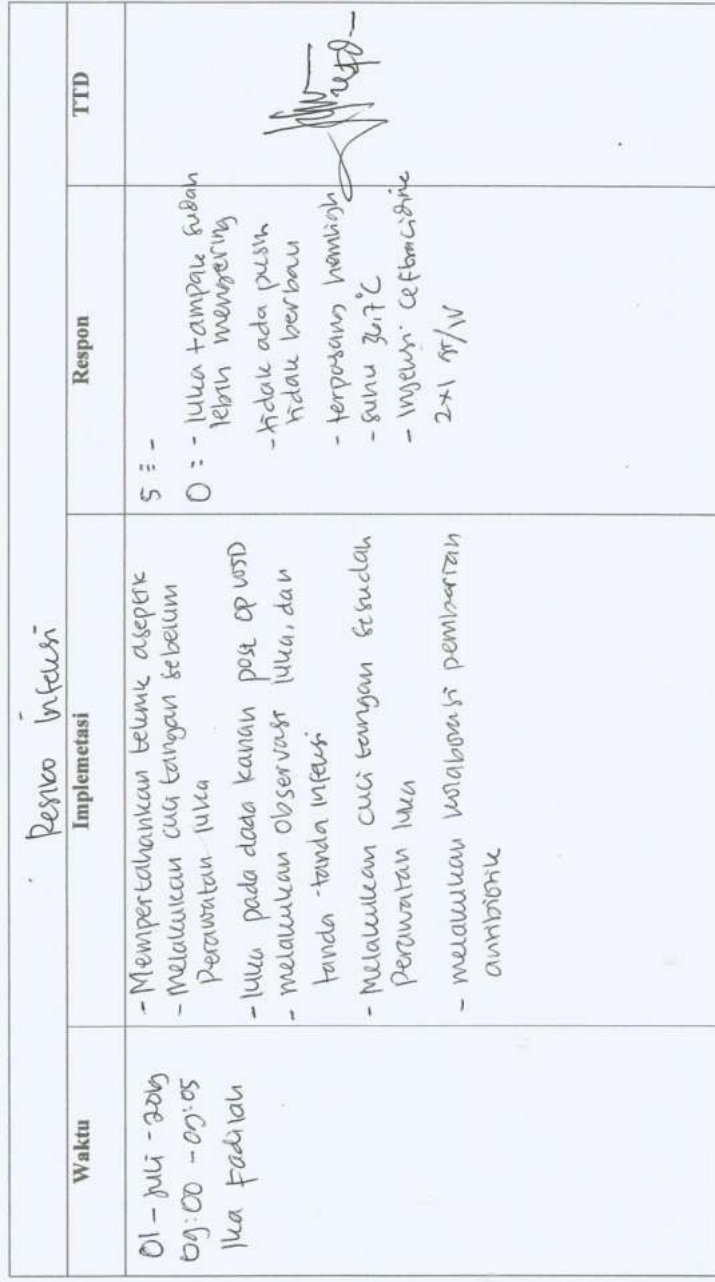 Resiko Infeksi
Waktu
Implemetasi
Respon
TTD
01 - Juli - 2019
09:00 - 09:05
Ika Fadilah
- Mempertahankan teknik aseptik
- Melakukan cuci tangan sebelum
Perawatan luka
- luka pada dada kanan post op WSD
- melakukan observasi luka, dan
tanda-tanda infeksi
- Melakukan cuci tangan sesudah
Perawatan luka
- melakukan kolaborasi pemberian
antibiotik
S = -
O : - luka tampak sudah
lebih mengering
- tidak ada push
tidak berbau
- terpasang hemligh
- suhu 36,7°C
- Injeksi Ceftbracidine
2x1 gr/IV